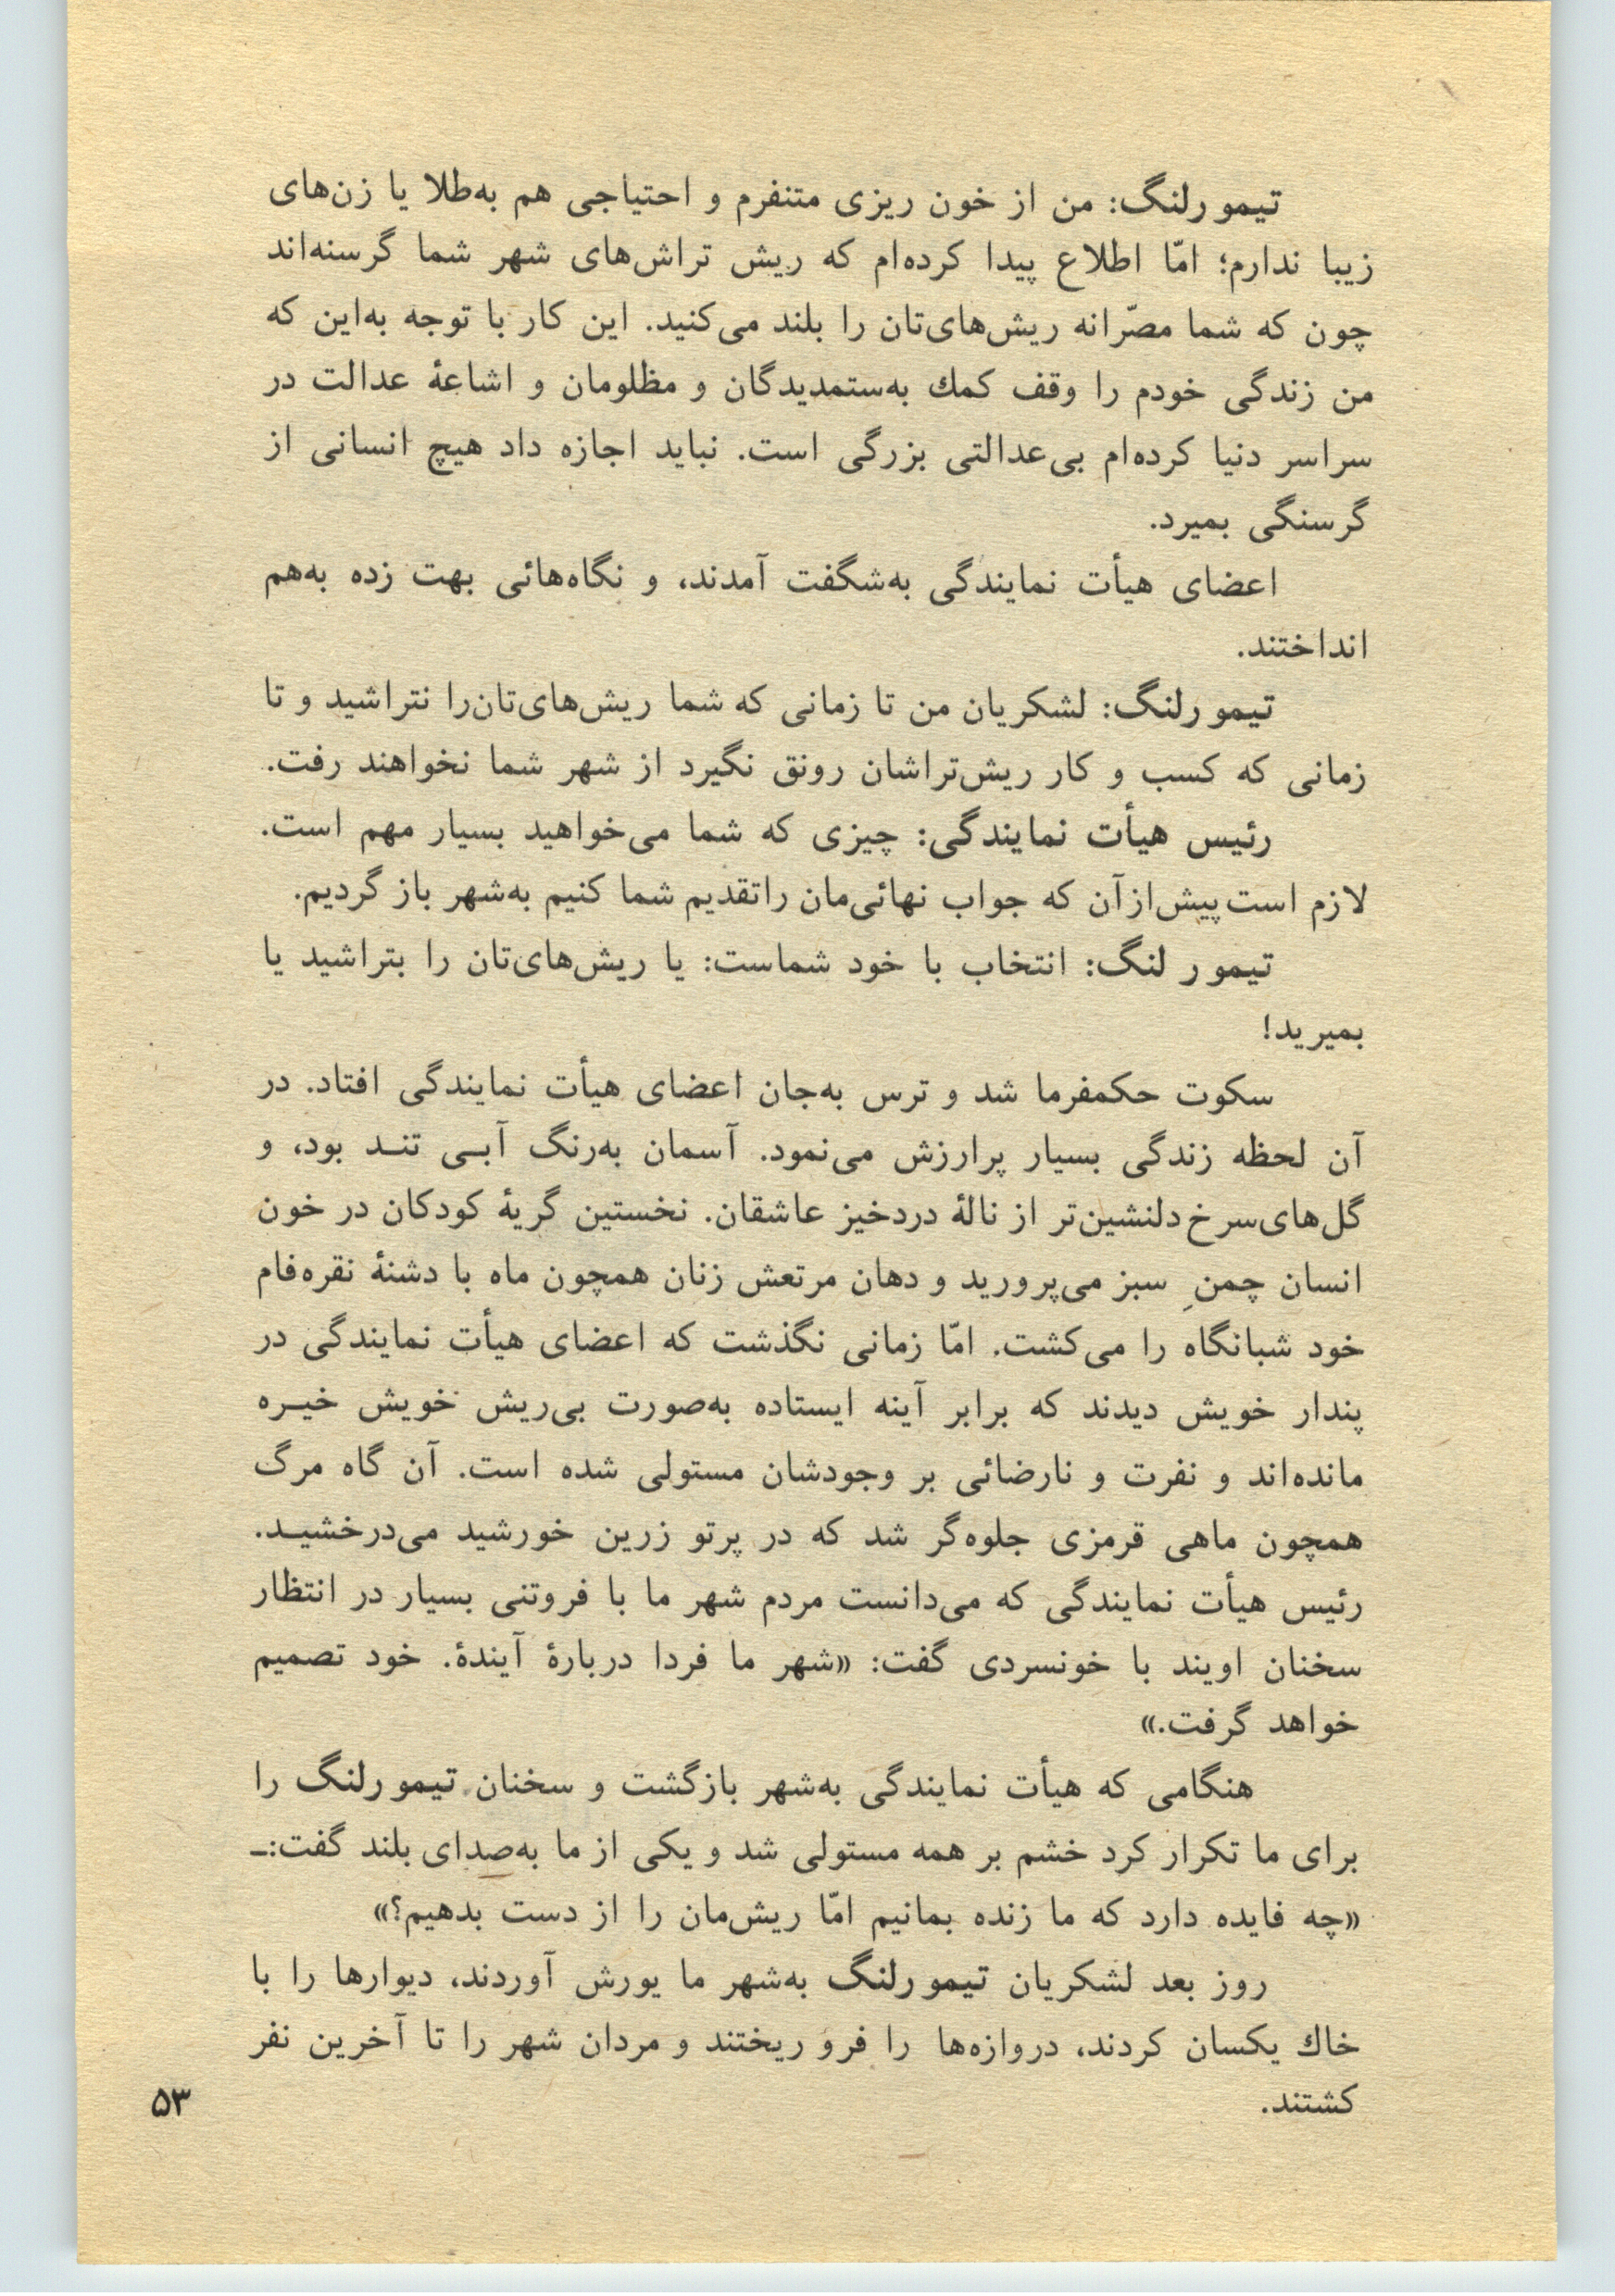 تیمورلنگ: من از خون ریزی متنفرم و احتیاجی هم به‌طلا یا زن‌های
زیبا ندارم؛ امّا اطلاع پیدا کرده‌ام که ریش تراش‌های شهر شما گرسنه‌اند
چون که شما مصّرانه ریش‌های‌تان را بلند می‌کنید. این کار با توجه به‌این که
من زندگی خودم را وقف کمك به‌ستمدیدگان و مظلومان و اشاعهٔ عدالت در
سراسر دنیا کرده‌ام بی‌عدالتی بزرگی است. نباید اجازه داد هیچ انسانی از
گرسنگی بمیرد.
اعضای هیأت نمایندگی به‌شگفت آمدند، و نگاه‌هائی بهت زده به‌هم
انداختند.
تیمورلنگ: لشکریان من تا زمانی که شما ریش‌های‌تان‌را نتراشید و تا
زمانی که کسب و کار ریش‌تراشان رونق نگیرد از شهر شما نخواهند رفت.
رئیس هیأت نمایندگی: چیزی که شما می‌خواهید بسیار مهم است.
لازم است پیش‌ازآن که جواب نهائی‌مان راتقدیم شما کنیم به‌شهر باز گردیم.
تیمور لنگ: انتخاب با خود شماست: یا ریش‌های‌تان را بتراشید یا
بمیرید!
سکوت حکمفرما شد و ترس به‌جان اعضای هیأت نمایندگی افتاد. در
آن لحظه زندگی بسیار پرارزش می‌نمود. آسمان به‌رنگ آبـی تنـد بود، و
گل‌های‌سرخ دلنشین‌تر از نالهٔ دردخیز عاشقان. نخستین گریهٔ کودکان در خون
انسان چمنِ سبز می‌پرورید و دهان مرتعش زنان همچون ماه با دشنهٔ نقره‌فام
خود شبانگاه را می‌کشت. امّا زمانی نگذشت که اعضای هیأت نمایندگی در
پندار خویش دیدند که برابر آینه ایستاده به‌صورت بی‌ریش خویش خیـره
مانده‌اند و نفرت و نارضائی بر وجودشان مستولی شده است. آن گاه مرگ
همچون ماهی قرمزی جلوه‌گر شد که در پرتو زرین خورشید می‌درخشیـد.
رئیس هیأت نمایندگی که می‌دانست مردم شهر ما با فروتنی بسیار در انتظار
سخنان اویند با خونسردی گفت: «شهر ما فردا دربارهٔ آیندهٔ. خود تصمیم
خواهد گرفت.»
هنگامی که هیأت نمایندگی به‌شهر بازگشت و سخنان تیمورلنگ را
برای ما تکرار کرد خشم بر همه مستولی شد و یکی از ما به‌صدای بلند گفت:ـ
«چه فایده دارد که ما زنده بمانیم امّا ریش‌مان را از دست بدهیم؟»
روز بعد لشکریان تیمورلنگ به‌شهر ما یورش آوردند، دیوارها را با
خاك یکسان کردند، دروازه‌ها را فرو ریختند و مردان شهر را تا آخرین نفر
کشتند.
۵۳